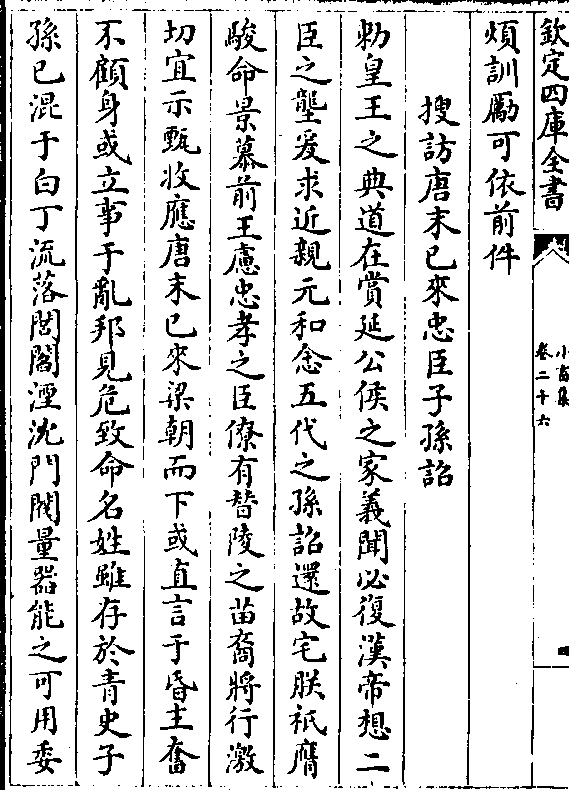 欽定四庫全書
小畜集
卷二十六
煩訓勵可依前件
搜訪唐末已來忠臣子孫詔
勑皇王之典道在賞延公侯之家義聞必復漢帝想二
臣之壟爰求近親元和念五代之孫詔還故宅朕祗膺
駿命景慕前王慮忠孝之臣僚有替陵之苗裔將行激
切宜示甄收應唐末已來梁朝而下或直言于昏主奮
不顧身或立事于亂邦見危致命名姓雖存於青史子
孫已混于白丁流落閭閻湮沈門閥量器能之可用委